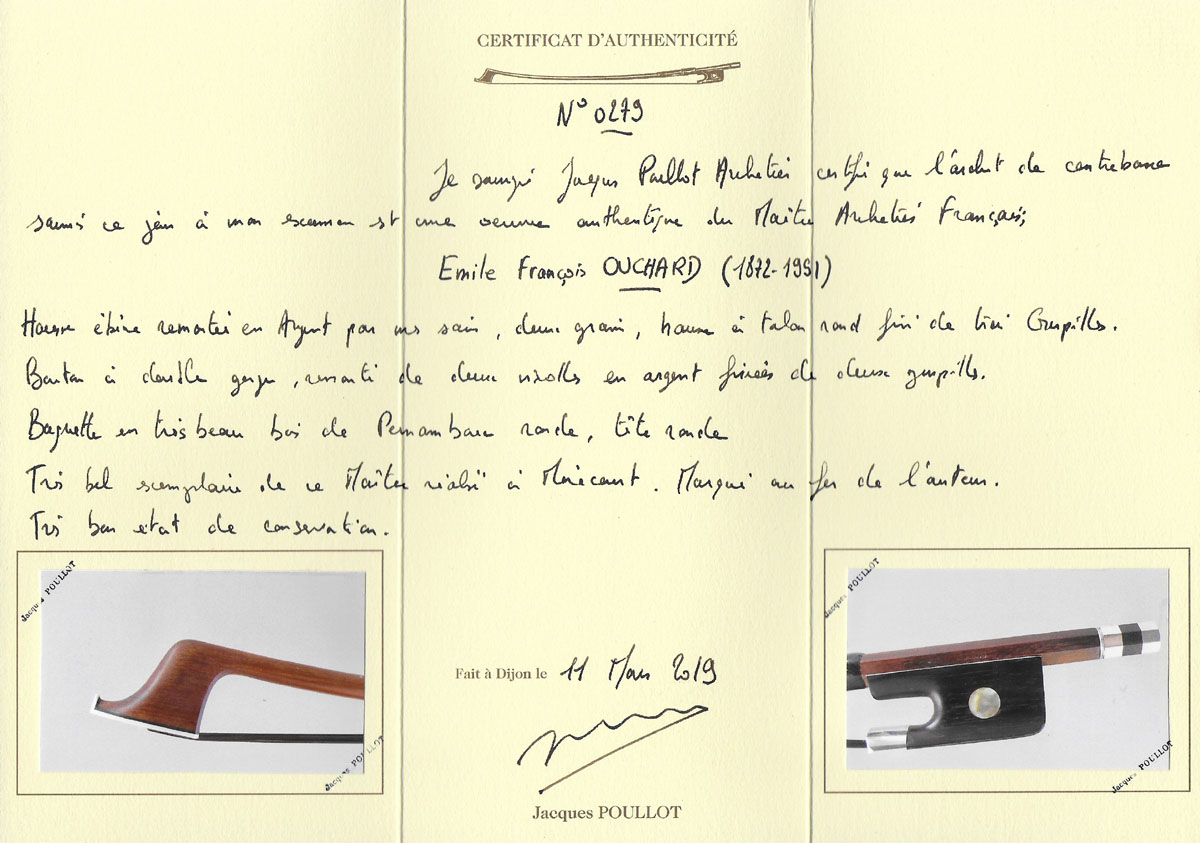 CERTIFICAT D'AUTHENTICITÉ
N° 0279
Je soussigné Jacques Poullot Archetier certifie que l'archet de contrebasse
soumis ce jour à mon examen est une oeuvre authentique du Maître Archetier Français;
Emile François OUCHARD (1872-1951)
Hausse ébène remontée en Argent par mes soins, deux grains, hausse à talon rond fixé de trois Goupilles.
Bouton à double gorge, remonté de deux virolles en argent fixées de deux goupilles.
Baguette en très beau bois de Pernambouc ronde, tête ronde
Très bel exemplaire de ce Maître réalisé à Mirecourt. Marqué au fer de l'auteur.
Très bon état de conservation.
Jacques POULLOT
Jacques POULLOT
Fait à Dijon le 11 Mars 2019
Jacques POULLOT
Jacques POULLOT
Jacques POULLOT